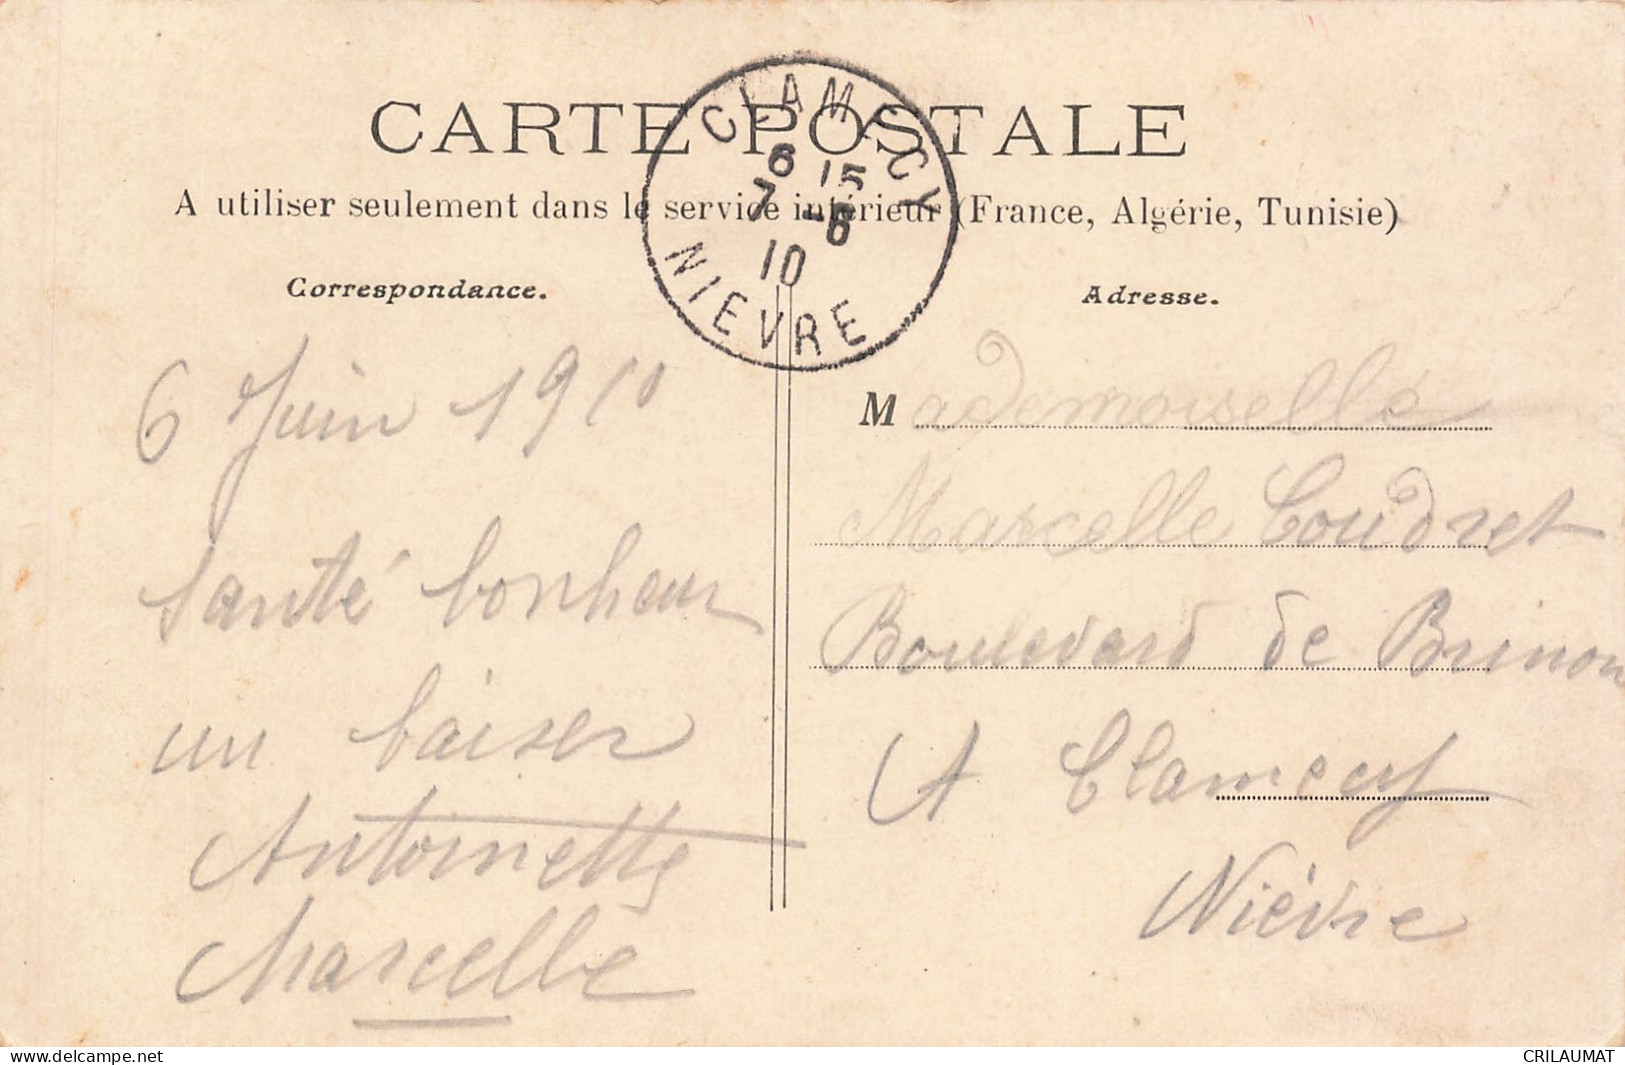 CARTE POSTALE
A utiliser seulement dans le service intérieur (France, Algérie, Tunisie)
CLAMECY
6 15
7 -6
10
NIEVRE
Correspondance.
6 Juin 1910
Santé bonheur
un baiser
Antoinette
Marcelle
Adresse.
Mademoiselle
Marcelle Coudret
Boulevard de Brinon
A Clamecy
Nièvre
http://www.delcampe.net
CRILAUMAT